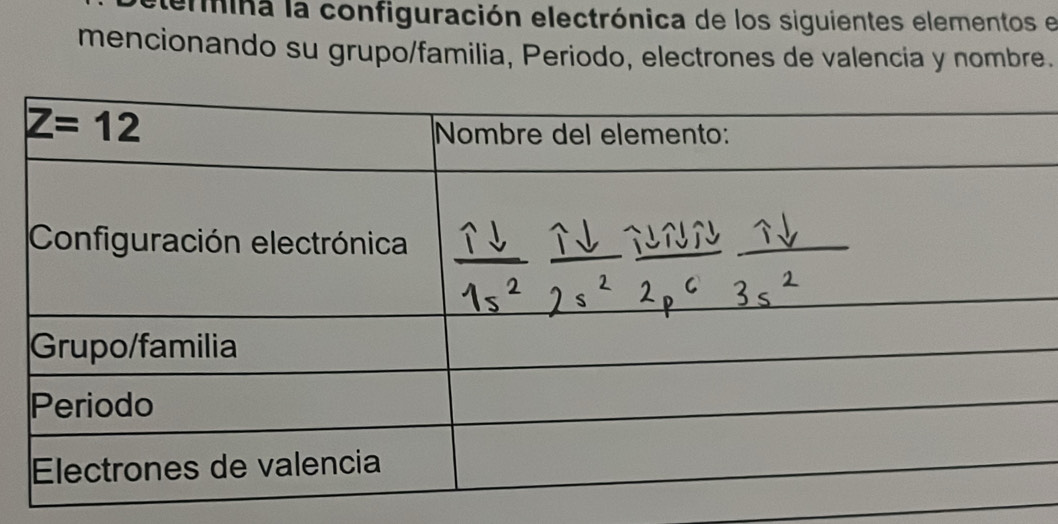 Determina la configuración electrónica de los siguientes elementos e
mencionando su grupo/familia, Periodo, electrones de valencia y nombre.
Z= 12
Nombre del elemento:
Configuración electrónica
↑↓ ↑↓ ↑↓↑↓↑↓ ↑↓
1s² 2s² 2p⁶ 3s²
Grupo/familia
Periodo
Electrones de valencia